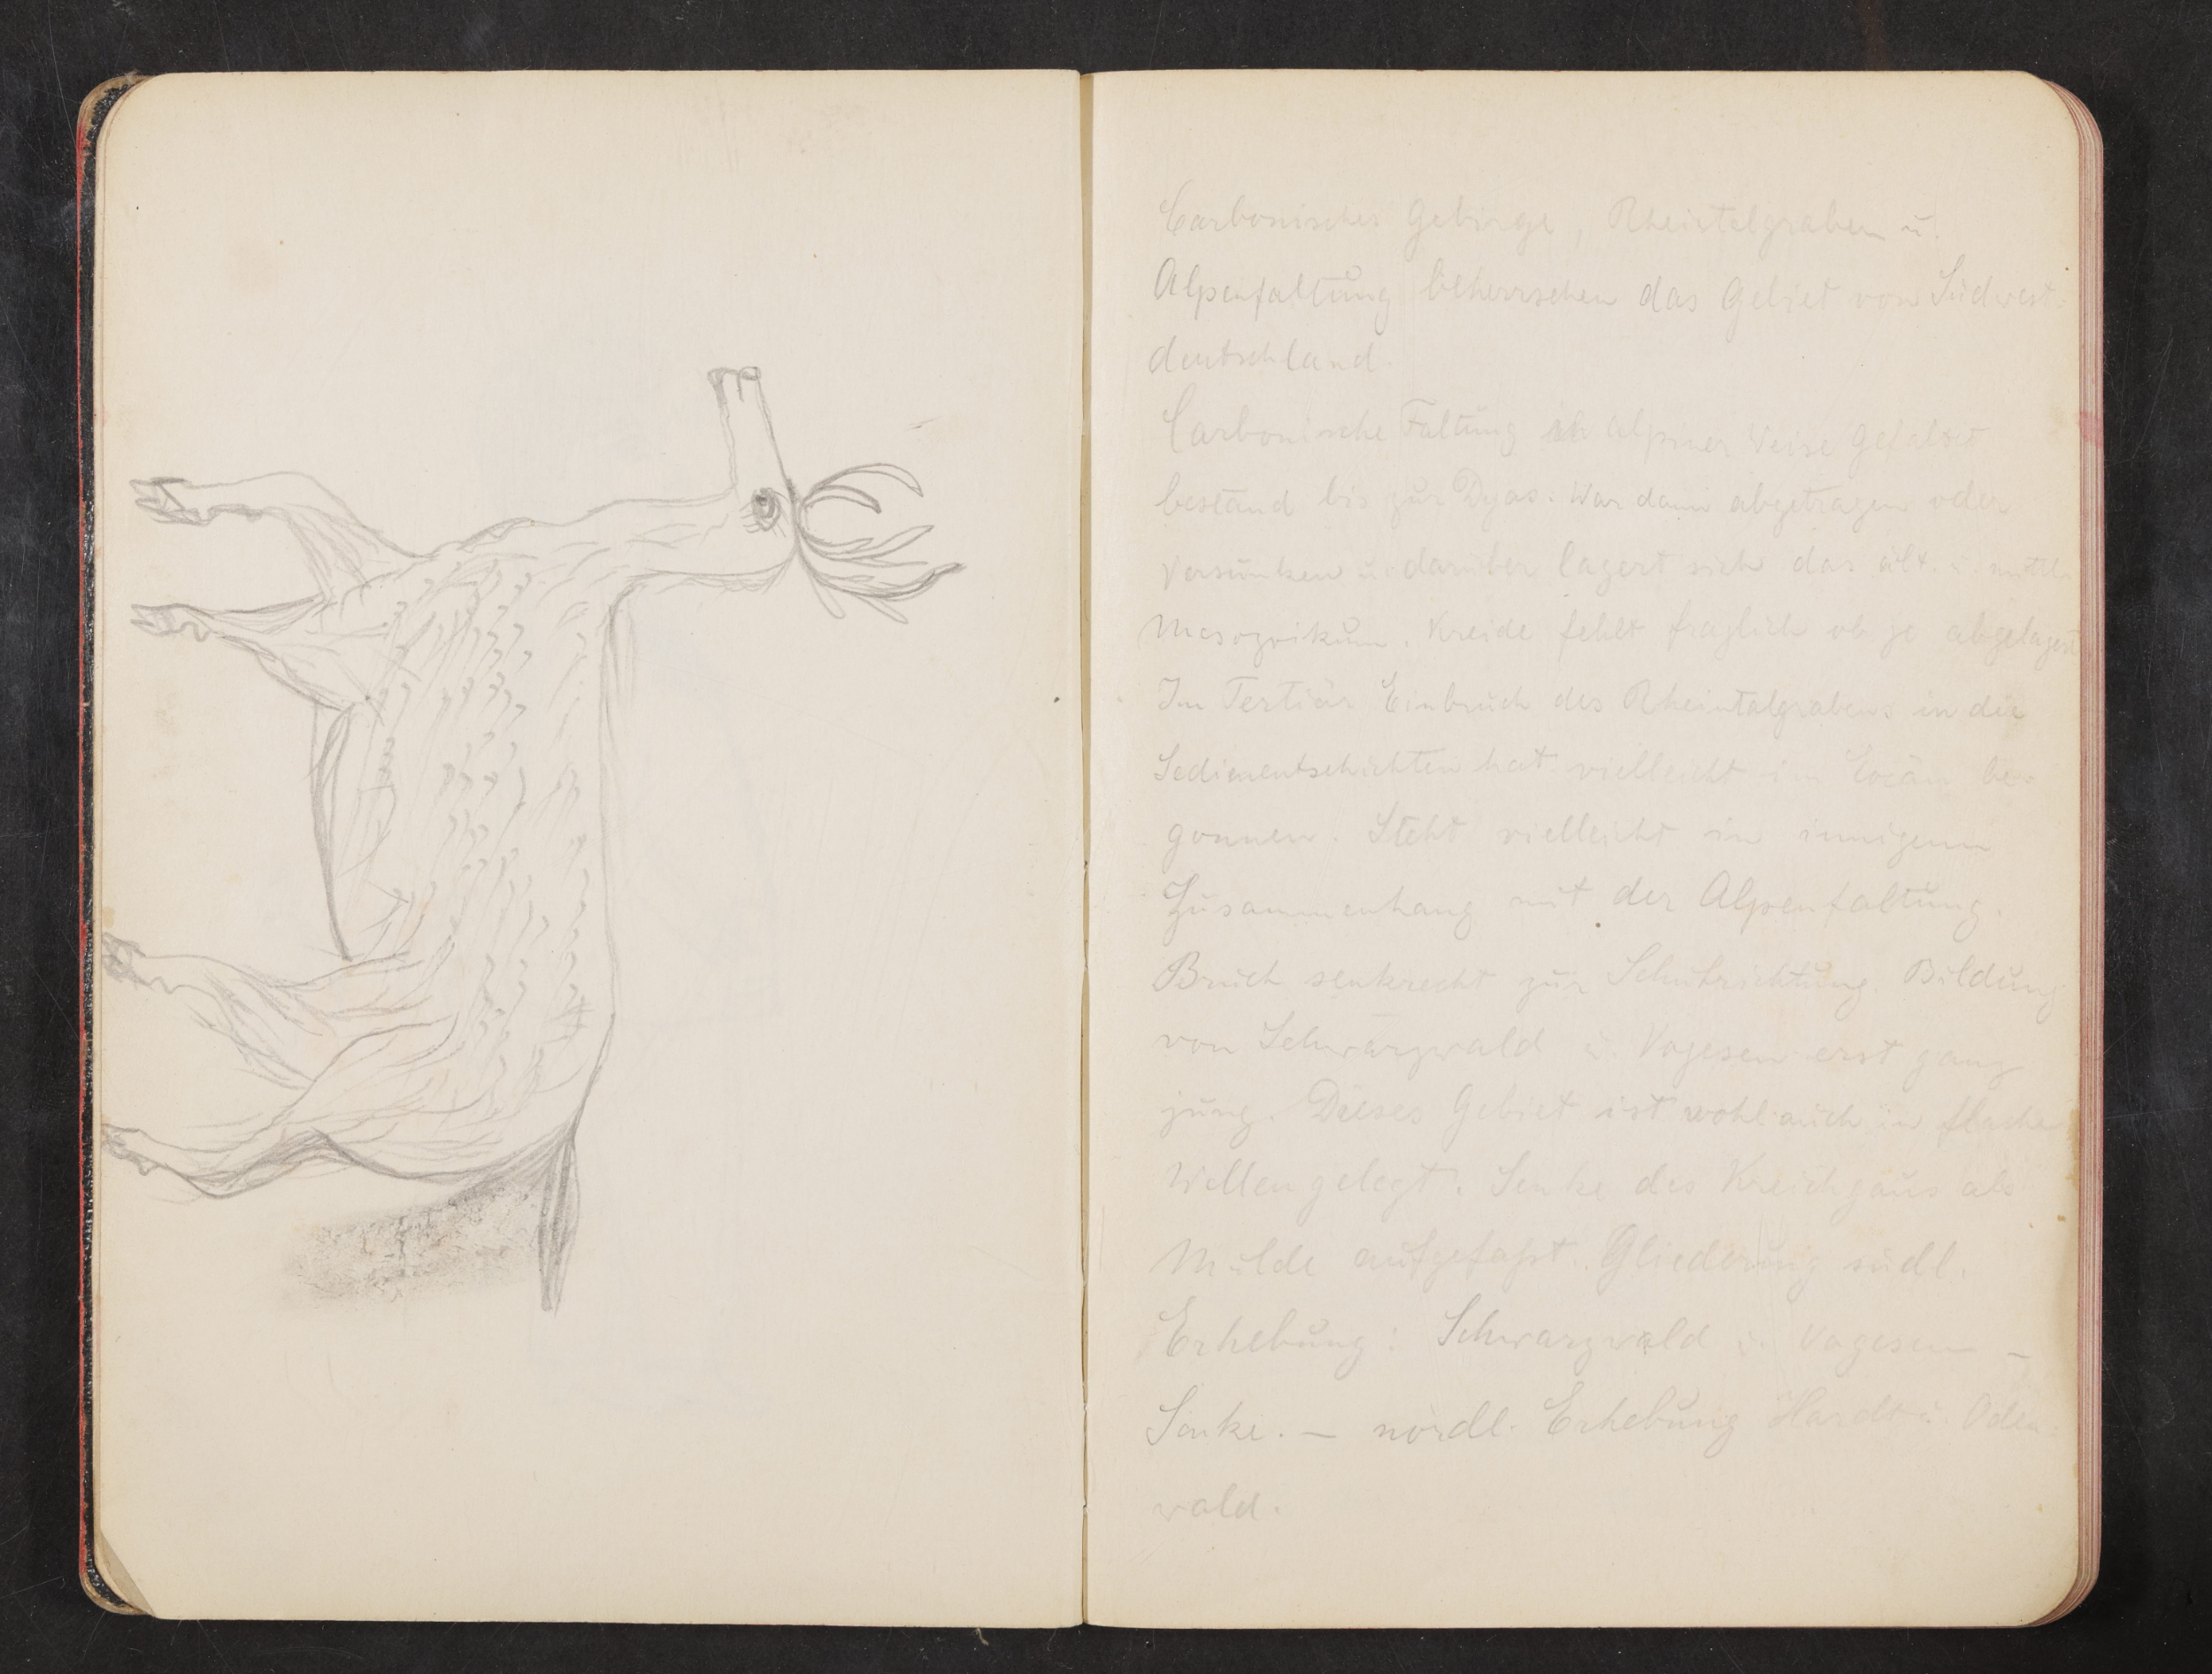 Carbonisches Gebirge, Rheintalgraben u.
Alpenfaltung beherrschen das Gebiet von Südwest-
deutschland.
Carbonische Faltung in alpiner Weise gefaltet
bestand bis zur Dyas. War dann abgetragen oder
versunken u. darüber lagert sich das ält. u. mittl.
Mesozoikum. Kreide fehlt fraglich ob je abgelagert
Im Tertiär Einbruch des Rheintalgrabens in die
Sedimentschichten hat vielleicht im Eocän be-
gonnen. Steht vielleicht in innigem
Zusammenhang mit der Alpenfaltung.
Bruch senkrecht zur Schubrichtung. Bildung
von Schwarzwald u. Vogesen erst ganz
jung. Dieses Gebiet ist wohl auch in flache
Wellen gelegt. Senke des Kreichgaus als
Mulde aufgefaßt. Gliederung südl.
Erhebung: Schwarzwald u. Vogesen –
Senke. – nördl. Erhebung Hardt u. Oden-
wald.